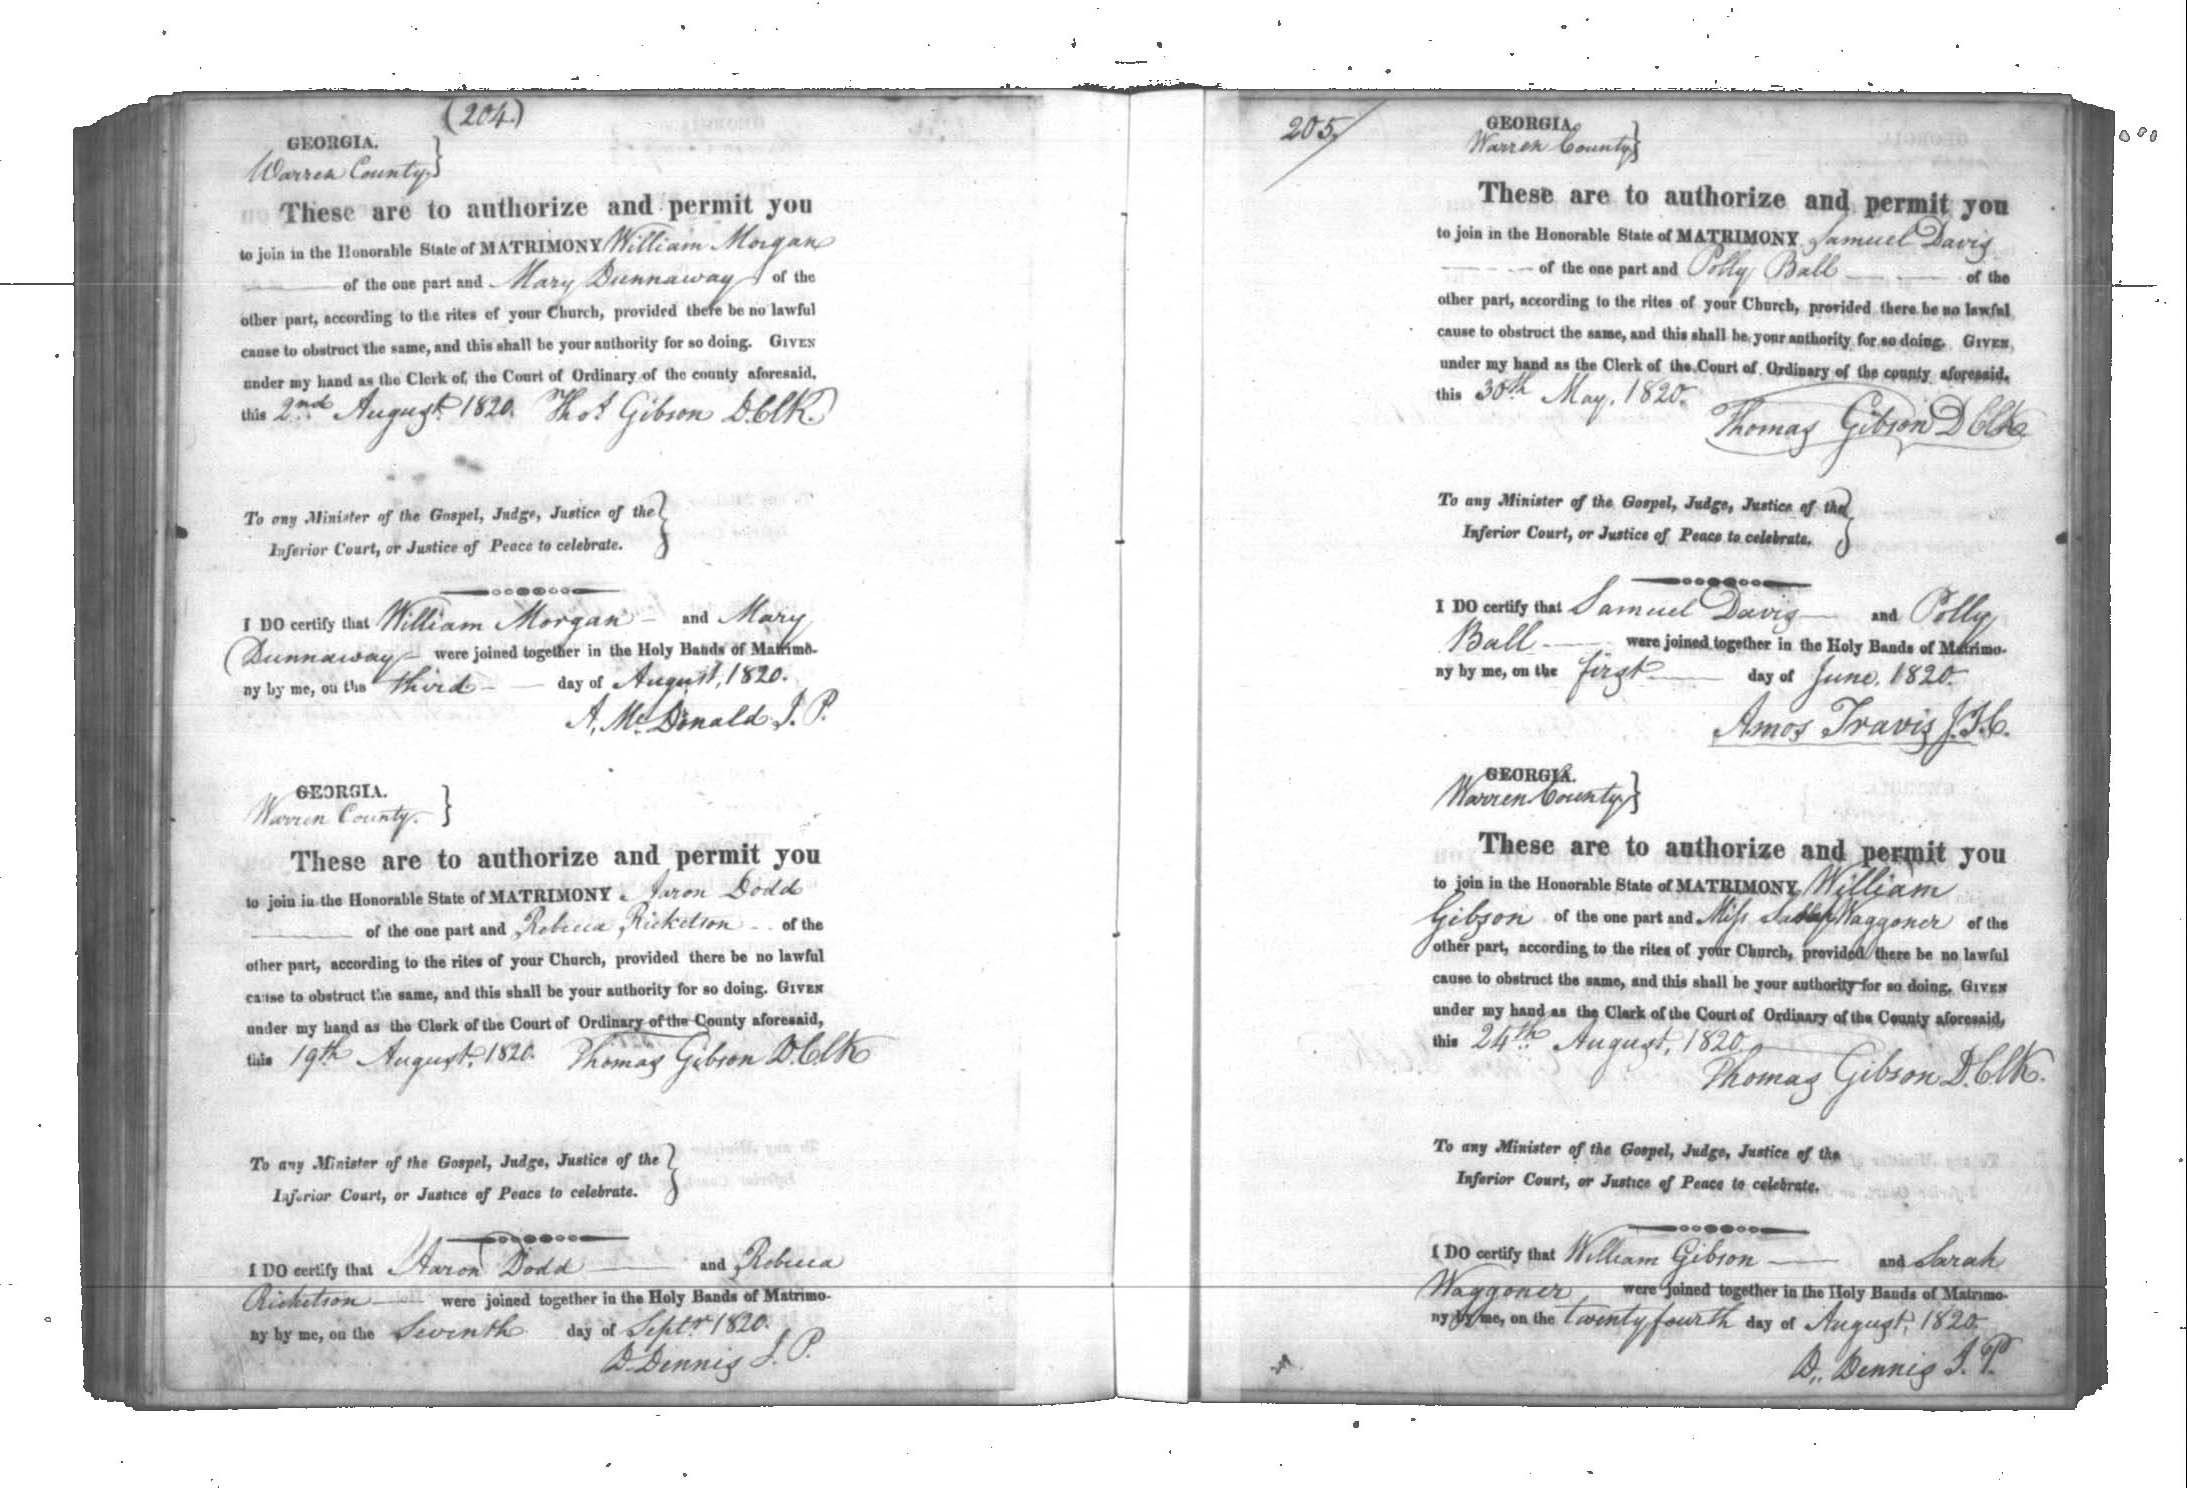 (204.)
GEORGIA.
Warren County. }
These are to authorize and permit you
to join in the Honorable State of MATRIMONY William Morgan
of the one part and Mary Dunnaway of the
other part, according to the rites of your Church, provided there be no lawful
cause to obstruct the same, and this shall be your authority for so doing. GIVEN
under my hand as the Clerk of the Court of Ordinary of the county aforesaid,
this 2nd August 1820. Thos Gibson D.Clk.
To any Minister of the Gospel, Judge, Justice of the }
Inferior Court, or Justice of Peace to celebrate.
I DO certify that William Morgan and Mary
Dunnaway were joined together in the Holy Bands of Matrimo-
ny by me, on the third day of August, 1820.
A, Mc.Donald J. P.
GEORGIA.
Warren County. }
These are to authorize and permit you
to join in the Honorable State of MATRIMONY Aaron Dodd
of the one part and Rebecca Ricketson of the
other part, according to the rites of your Church, provided there be no lawful
cause to obstruct the same, and this shall be your authority for so doing. GIVEN
under my hand as the Clerk of the Court of Ordinary of the County aforesaid,
this 19th August, 1820. Thomas Gibson D.Clk
To any Minister of the Gospel, Judge, Justice of the }
Inferior Court, or Justice of Peace to celebrate.
I DO certify that Aaron Dodd and Rebecca
Ricketson were joined together in the Holy Bands of Matrimo-
ny by me, on the Seventh day of Septr 1820.
D. Dennis J. P.
205/
GEORGIA.
Warren County }
These are to authorize and permit you
to join in the Honorable State of MATRIMONY Samuel Davis
of the one part and Polly Ball of the
other part, according to the rites of your Church, provided there be no lawful
cause to obstruct the same, and this shall be your authority for so doing. GIVEN
under my hand as the Clerk of the Court of Ordinary of the county aforesaid,
this 30th May, 1820.
Thomas Gibson D Clk
To any Minister of the Gospel, Judge, Justice of the }
Inferior Court, or Justice of Peace to celebrate.
I DO certify that Samuel Davis and Polly
Ball were joined together in the Holy Bands of Matrimo-
ny by me, on the first day of June, 1820.
Amos Travis J.I.C.
GEORGIA.
Warren County }
These are to authorize and permit you
to join in the Honorable State of MATRIMONY William
Gibson of the one part and Miss Waggoner of the
other part, according to the rites of your Church, provided there be no lawful
cause to obstruct the same, and this shall be your authority for so doing. GIVEN
under my hand as the Clerk of the Court of Ordinary of the County aforesaid,
this 24th August, 1820
Thomas Gibson D.Clk.
To any Minister of the Gospel, Judge, Justice of the
Inferior Court, or Justice of Peace to celebrate.
I DO certify that William Gibson and Sarah
Waggoner were joined together in the Holy Bands of Matrimo-
ny by me, on the twenty fourth day of August, 1820.
D,, Dennis J. P.